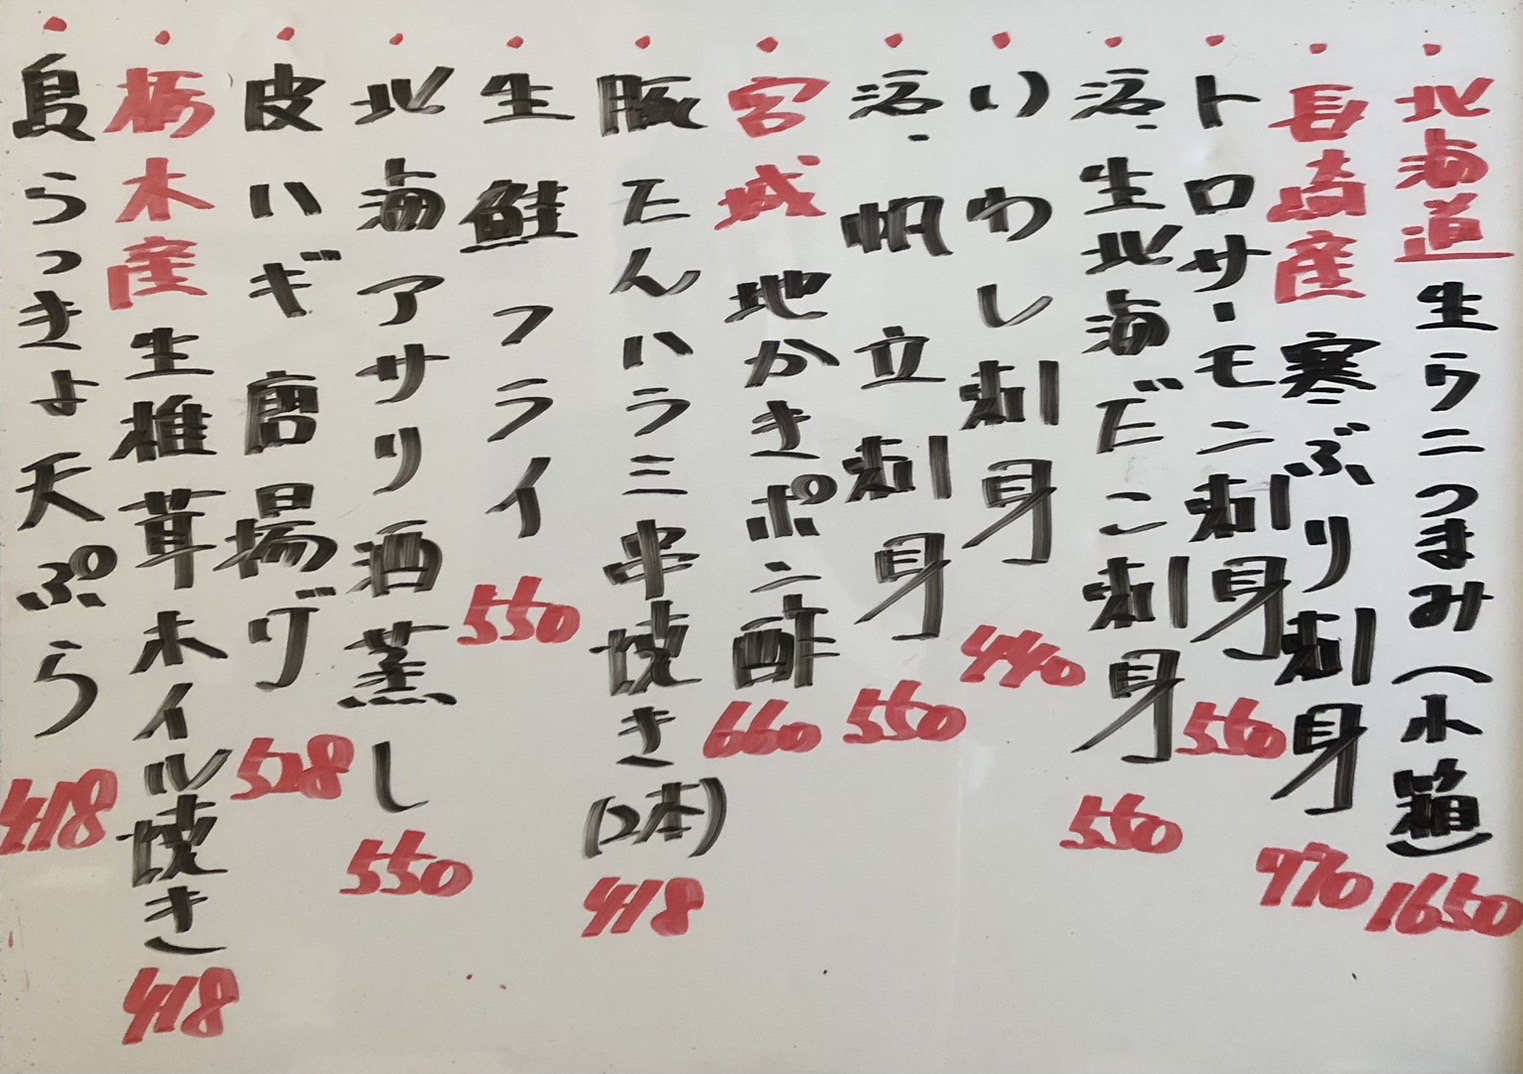 ・北海道生ウニつまみ(小箱)1650
・長崎産寒ぶり刺身770
・トロサーモン刺身550
・活生北海だこ刺身550
・いわし刺身440
・活帆立刺身550
・宮城地かきポン酢660
・豚たんハラミ串焼き(2本)418
・生鮭フライ550
・北海アサリ酒蒸し550
・皮ハギ唐揚げ528
・栃木産生椎茸ホイル焼き418
・島らっきょ天ぷら418